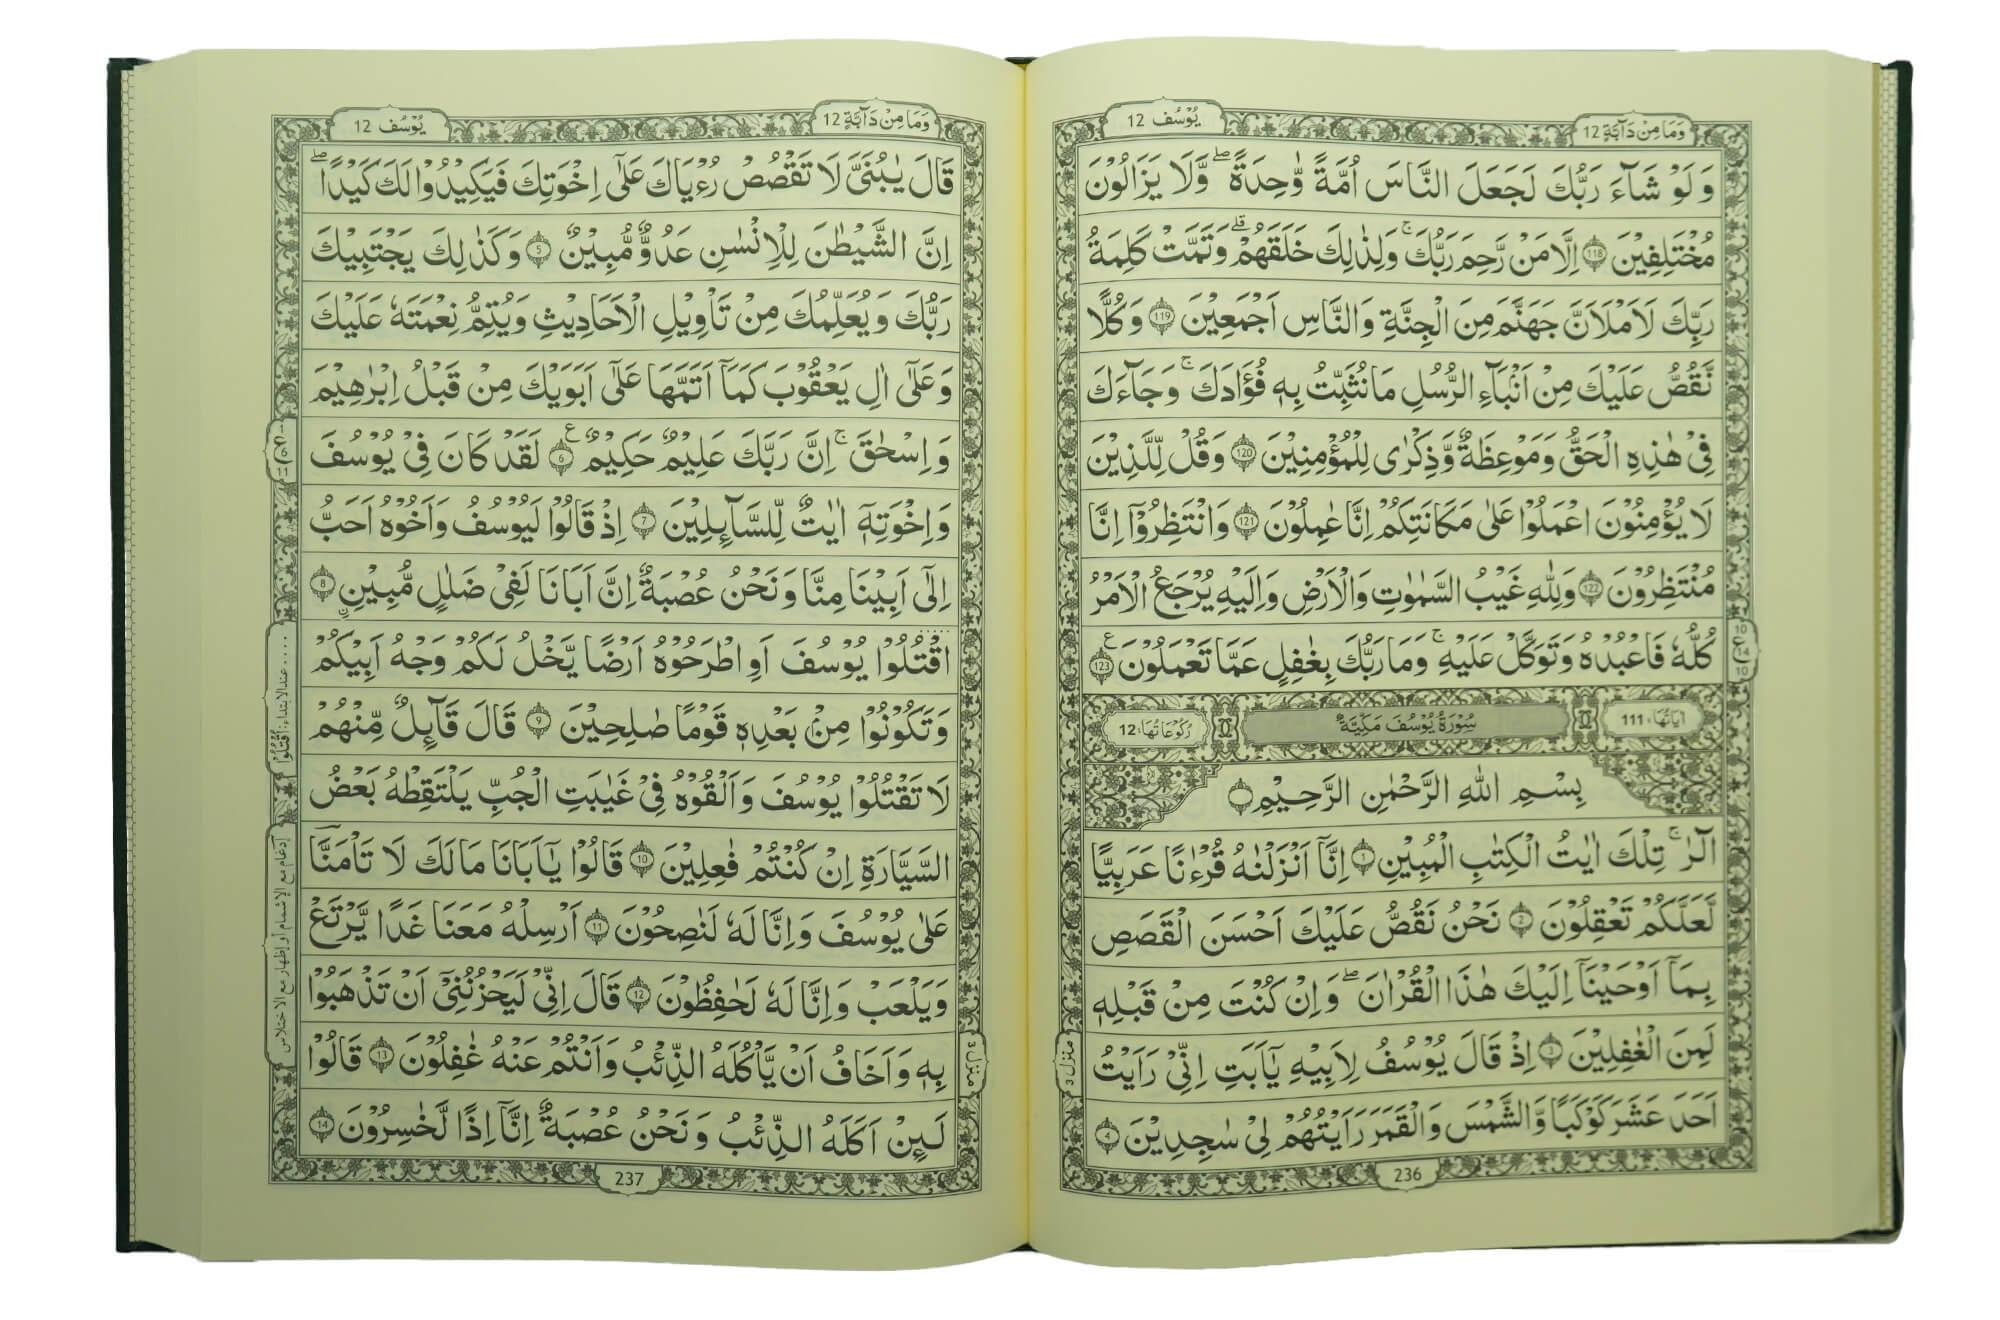 وَمَا مِنْ دَآبَّةٍ 12
يُوْسُف 12
وَلَوْ شَآءَ رَبُّكَ لَجَعَلَ النَّاسَ اُمَّةً وَّاحِدَةً ؕ وَّلَا يَزَالُوْنَ
مُخْتَلِفِيْنَ 118 اِلَّا مَنْ رَّحِمَ رَبُّكَ ۚ وَلِذٰلِكَ خَلَقَهُمْ ؕ وَتَمَّتْ كَلِمَةُ
رَبِّكَ لَاَمْلَـَٔنَّ جَهَنَّمَ مِنَ الْجِنَّةِ وَالنَّاسِ اَجْمَعِيْنَ 119 وَكُلًّا
نَّقُصُّ عَلَيْكَ مِنْ اَنْۢبَآءِ الرُّسُلِ مَا نُثَبِّتُ بِهٖ فُؤَادَكَ ۚ وَجَآءَكَ
فِيْ هٰذِهِ الْحَقُّ وَمَوْعِظَةٌ وَّذِكْرٰى لِلْمُؤْمِنِيْنَ 120 وَقُلْ لِّلَّذِيْنَ
لَا يُؤْمِنُوْنَ اعْمَلُوْا عَلٰى مَكَانَتِكُمْ اِنَّا عٰمِلُوْنَ 121 وَانْتَظِرُوْٓا اِنَّا
مُنْتَظِرُوْنَ 122 وَلِلّٰهِ غَيْبُ السَّمٰوٰتِ وَالْاَرْضِ وَاِلَيْهِ يُرْجَعُ الْاَمْرُ
كُلُّهٗ فَاعْبُدْهُ وَتَوَكَّلْ عَلَيْهِ ۚ وَمَا رَبُّكَ بِغٰفِلٍ عَمَّا تَعْمَلُوْنَ 123
اٰيَاتُهَا: 111
سُوْرَةُ يُوْسُفَ مَكِّيَّةٌ
رُكُوْعَاتُهَا: 12
بِسْمِ اللّٰهِ الرَّحْمٰنِ الرَّحِيْمِ
الٓرٰ ۚ تِلْكَ اٰيٰتُ الْكِتٰبِ الْمُبِيْنِ 1 اِنَّآ اَنْزَلْنٰهُ قُرْءٰنًا عَرَبِيًّا
لَّعَلَّكُمْ تَعْقِلُوْنَ 2 نَحْنُ نَقُصُّ عَلَيْكَ اَحْسَنَ الْقَصَصِ
بِمَآ اَوْحَيْنَآ اِلَيْكَ هٰذَا الْقُرْاٰنَ ۖ وَاِنْ كُنْتَ مِنْ قَبْلِهٖ
لَمِنَ الْغٰفِلِيْنَ 3 اِذْ قَالَ يُوْسُفُ لِاَبِيْهِ يٰٓاَبَتِ اِنِّيْ رَاَيْتُ
اَحَدَ عَشَرَ كَوْكَبًا وَّالشَّمْسَ وَالْقَمَرَ رَاَيْتُهُمْ لِيْ سٰجِدِيْنَ 4
منزل ٣
236
وَمَا مِنْ دَآبَّةٍ 12
يُوْسُف 12
قَالَ يٰبُنَيَّ لَا تَقْصُصْ رُءْيَاكَ عَلٰٓى اِخْوَتِكَ فَيَكِيْدُوْا لَكَ كَيْدًا ؕ
اِنَّ الشَّيْطٰنَ لِلْاِنْسٰنِ عَدُوٌّ مُّبِيْنٌ 5 وَكَذٰلِكَ يَجْتَبِيْكَ
رَبُّكَ وَيُعَلِّمُكَ مِنْ تَاْوِيْلِ الْاَحَادِيْثِ وَيُتِمُّ نِعْمَتَهٗ عَلَيْكَ
وَعَلٰٓى اٰلِ يَعْقُوْبَ كَمَآ اَتَمَّهَا عَلٰٓى اَبَوَيْكَ مِنْ قَبْلُ اِبْرٰهِيْمَ
وَاِسْحٰقَ ۚ اِنَّ رَبَّكَ عَلِيْمٌ حَكِيْمٌ 6 لَقَدْ كَانَ فِيْ يُوْسُفَ
وَاِخْوَتِهٖٓ اٰيٰتٌ لِّلسَّآئِلِيْنَ 7 اِذْ قَالُوْا لَيُوْسُفُ وَاَخُوْهُ اَحَبُّ
اِلٰٓى اَبِيْنَا مِنَّا وَنَحْنُ عُصْبَةٌ اِنَّ اَبَانَا لَفِيْ ضَلٰلٍ مُّبِيْنٍ 8
اقْتُلُوْا يُوْسُفَ اَوِ اطْرَحُوْهُ اَرْضًا يَّخْلُ لَكُمْ وَجْهُ اَبِيْكُمْ
وَتَكُوْنُوْا مِنْۢ بَعْدِهٖ قَوْمًا صٰلِحِيْنَ 9 قَالَ قَآئِلٌ مِّنْهُمْ
لَا تَقْتُلُوْا يُوْسُفَ وَاَلْقُوْهُ فِيْ غَيٰبَتِ الْجُبِّ يَلْتَقِطْهُ بَعْضُ
السَّيَّارَةِ اِنْ كُنْتُمْ فٰعِلِيْنَ 10 قَالُوْا يٰٓاَبَانَا مَالَكَ لَا تَاْمَنَّا
عَلٰى يُوْسُفَ وَاِنَّا لَهٗ لَنٰصِحُوْنَ 11 اَرْسِلْهُ مَعَنَا غَدًا يَّرْتَعْ
وَيَلْعَبْ وَاِنَّا لَهٗ لَحٰفِظُوْنَ 12 قَالَ اِنِّيْ لَيَحْزُنُنِيْٓ اَنْ تَذْهَبُوْا
بِهٖ وَاَخَافُ اَنْ يَّاْكُلَهُ الذِّئْبُ وَاَنْتُمْ عَنْهُ غٰفِلُوْنَ 13 قَالُوْا
لَىِٕنْ اَكَلَهُ الذِّئْبُ وَنَحْنُ عُصْبَةٌ اِنَّآ اِذًا لَّخٰسِرُوْنَ 14
عند الابتداء: اُقْتُلُوْا
إدغام مع الإشمام أو إظهار مع الاختلاس
منزل ٣
237